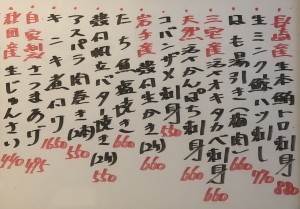 長崎産 生本鮪トロ刺身 880
生ミンク鯨ハツ刺し 770
はも湯引き(梅肉) 660
三宅産 活〆オキタカベ刺身 660
天然 活〆かんぱち刺身 660
コバンザメ刺身 550
岩手産 殻付生かき 660
たち魚塩焼き 660
殻付帆立バタ焼き(2ケ) 550
アスパラ肉巻き(2本) 550
キンキ煮付け 1650
自家製 さつまあげ 495
静岡産 生じゅんさい 440